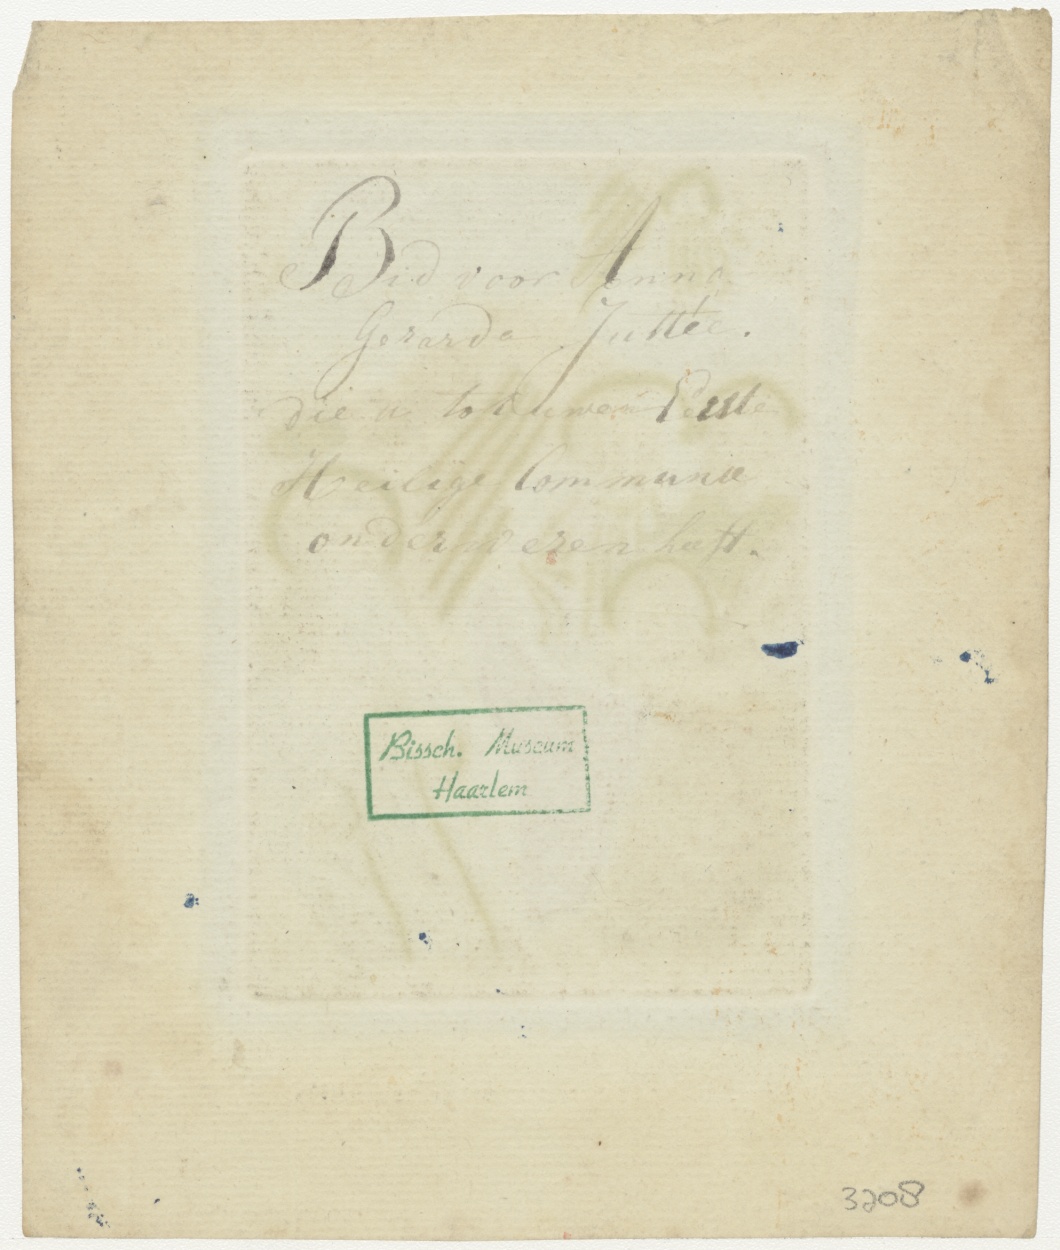 Bid voor Anna
Gerarda Juttée.
die u tot uwen Eerste
Heilige Communie
onderwezen heft.
Bissch. Museum
Haarlem
3208